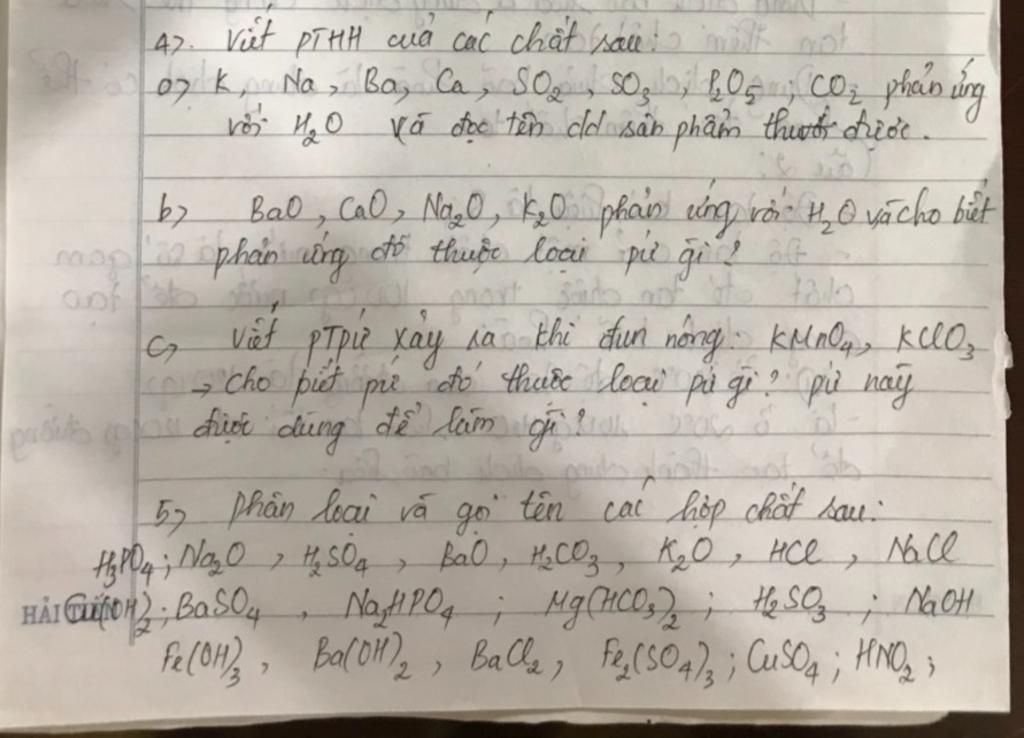 4>. Viết PTHH của các chất sau:
a> K, Na, Ba, Ca, SO₂, SO₃, P₂O₅; CO₂ phản ứng
với H₂O và đọc tên dd sản phẩm được.
b> BaO, CaO, Na₂O, K₂O phản ứng với H₂O và cho biết
phản ứng đó thuộc loại pứ gì?
c> Viết PTpứ xảy ra khi đun nóng: KMnO₄, KClO₃
→ Cho biết pứ đó thuộc loại pứ gì? pứ này
được dùng để làm gì?
5> Phân loại và gọi tên các hợp chất sau:
H₃PO₄; Na₂O, H₂SO₄, BaO, H₂CO₃, K₂O, HCl, NaCl
HẢI (OH)₂; BaSO₄, Na₂HPO₄; Mg(HCO₃)₂; H₂SO₃; NaOH
Fe(OH)₃, Ba(OH)₂, BaCl₂, Fe₂(SO₄)₃; CuSO₄; HNO₂;